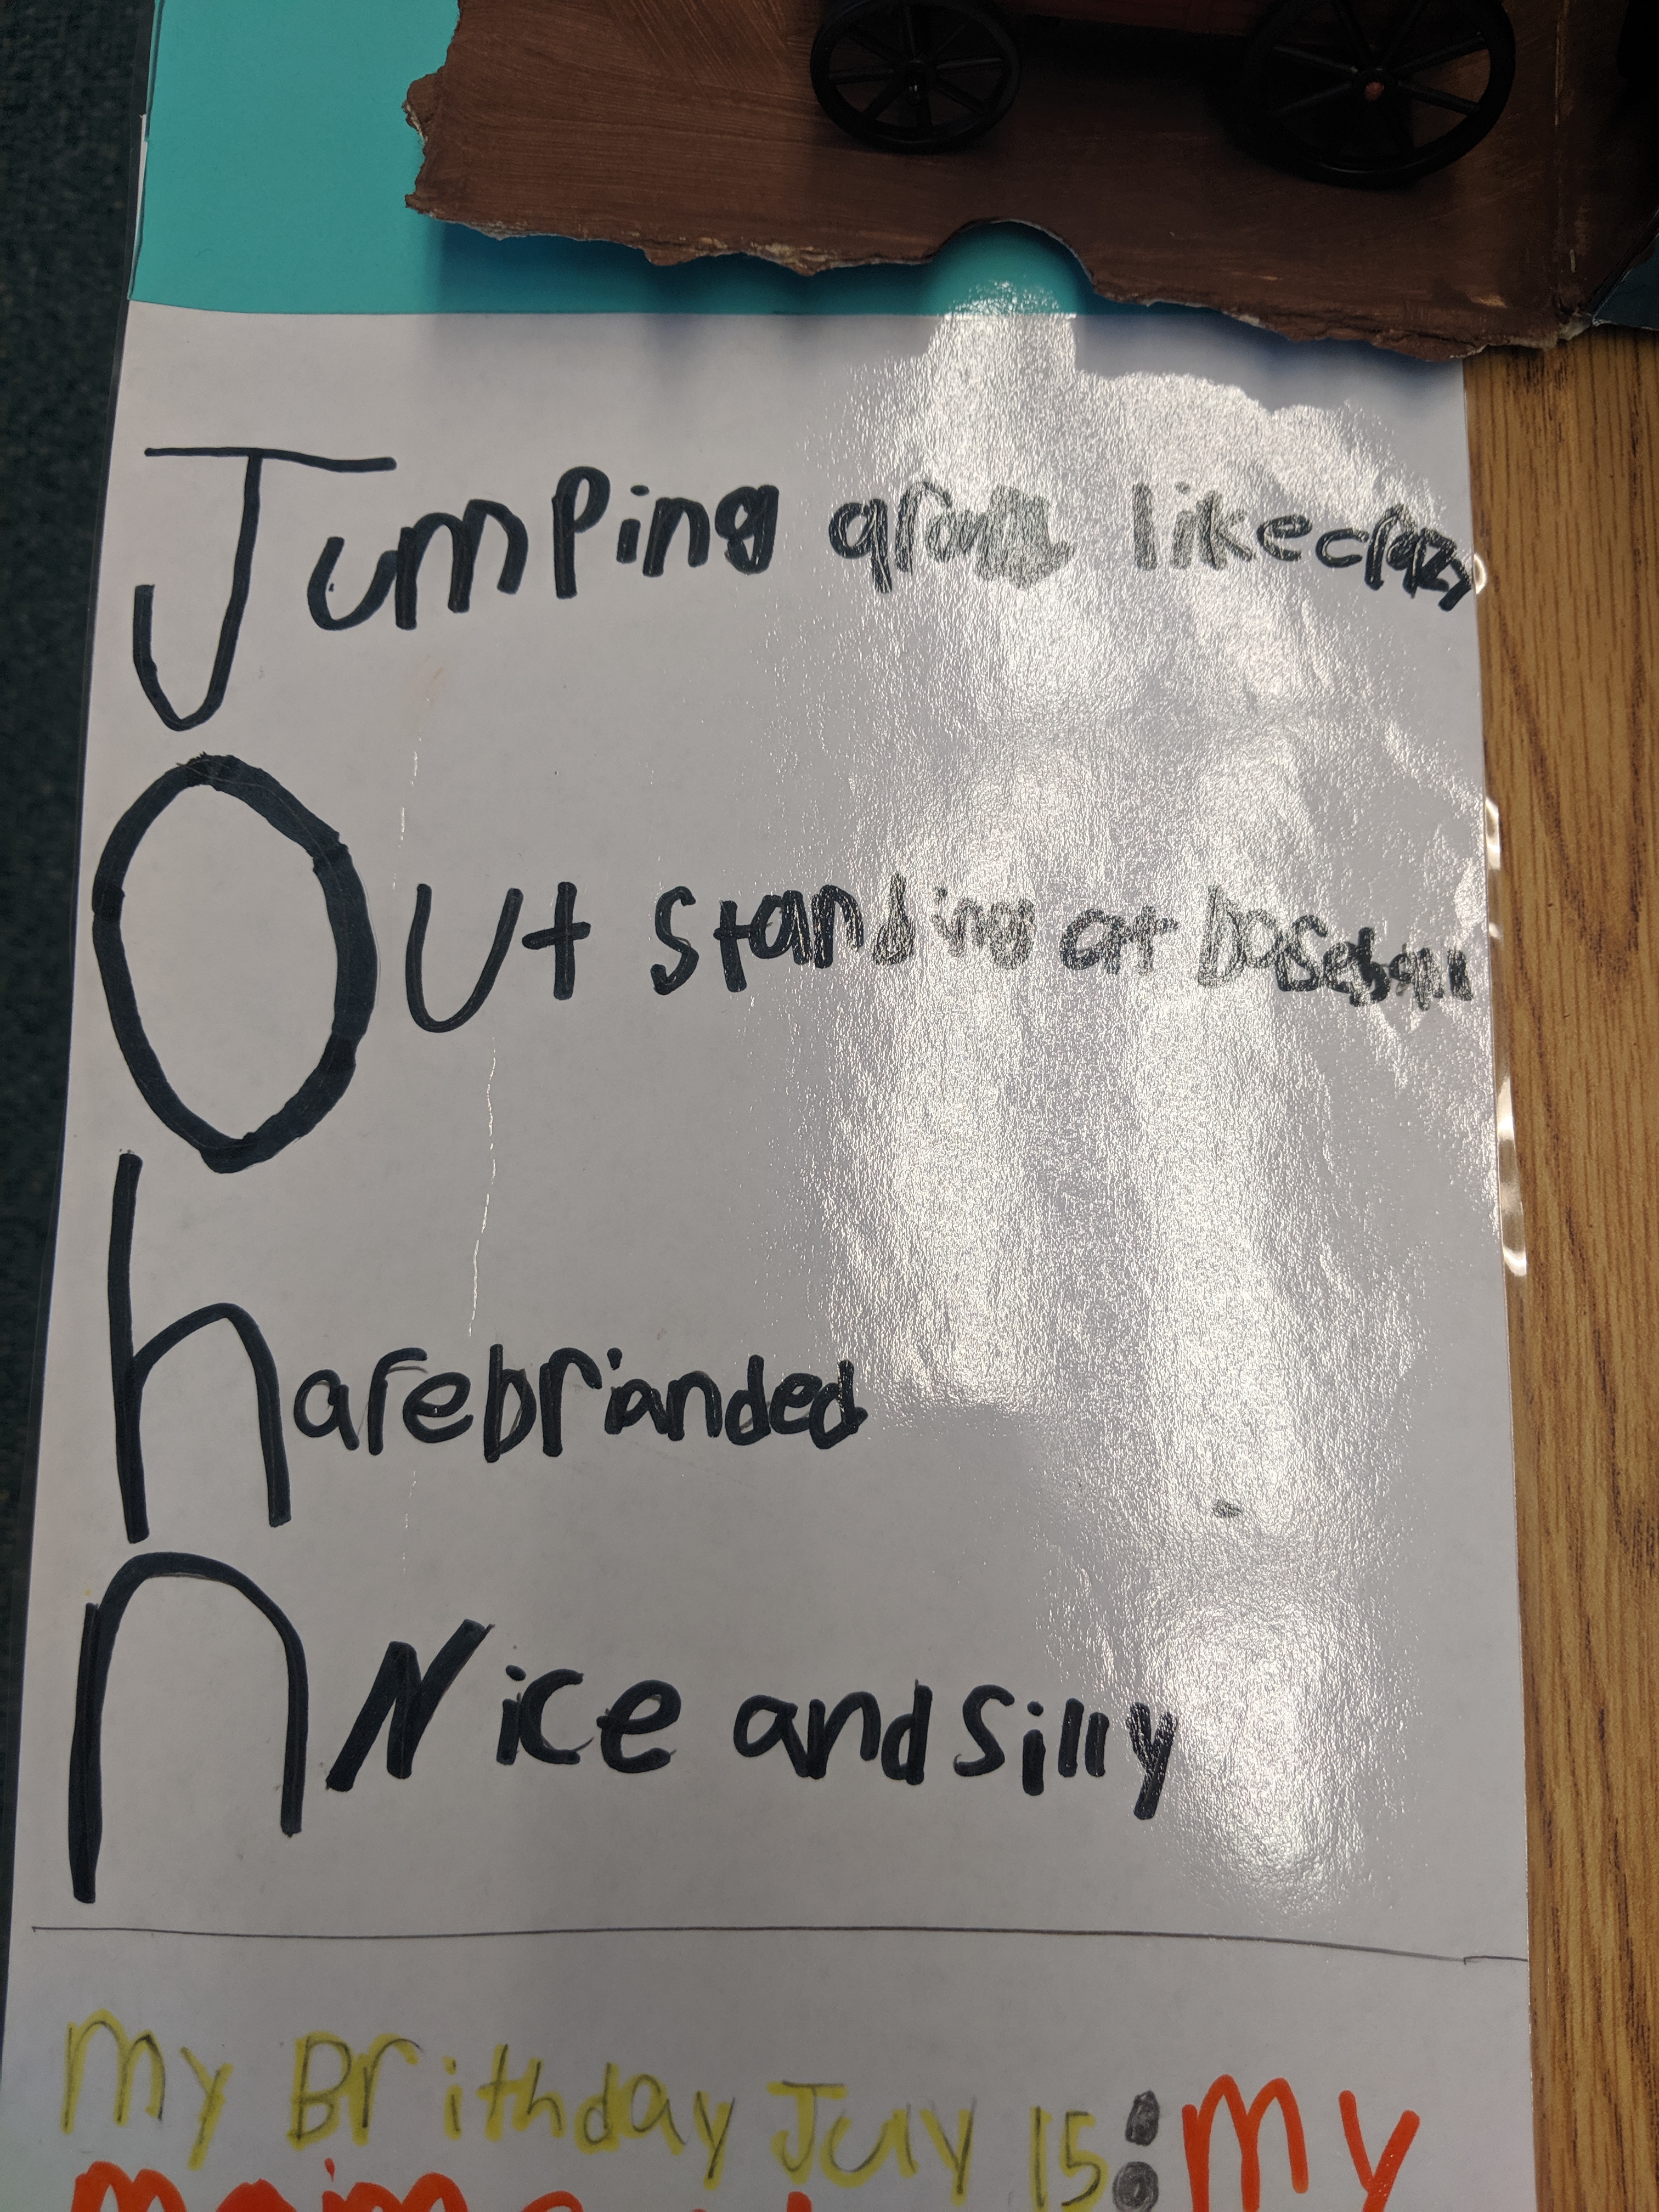 Jumping like crazy
Out standing at baseball
harebrianded
n Nice and silly
My Brithday July 15: my